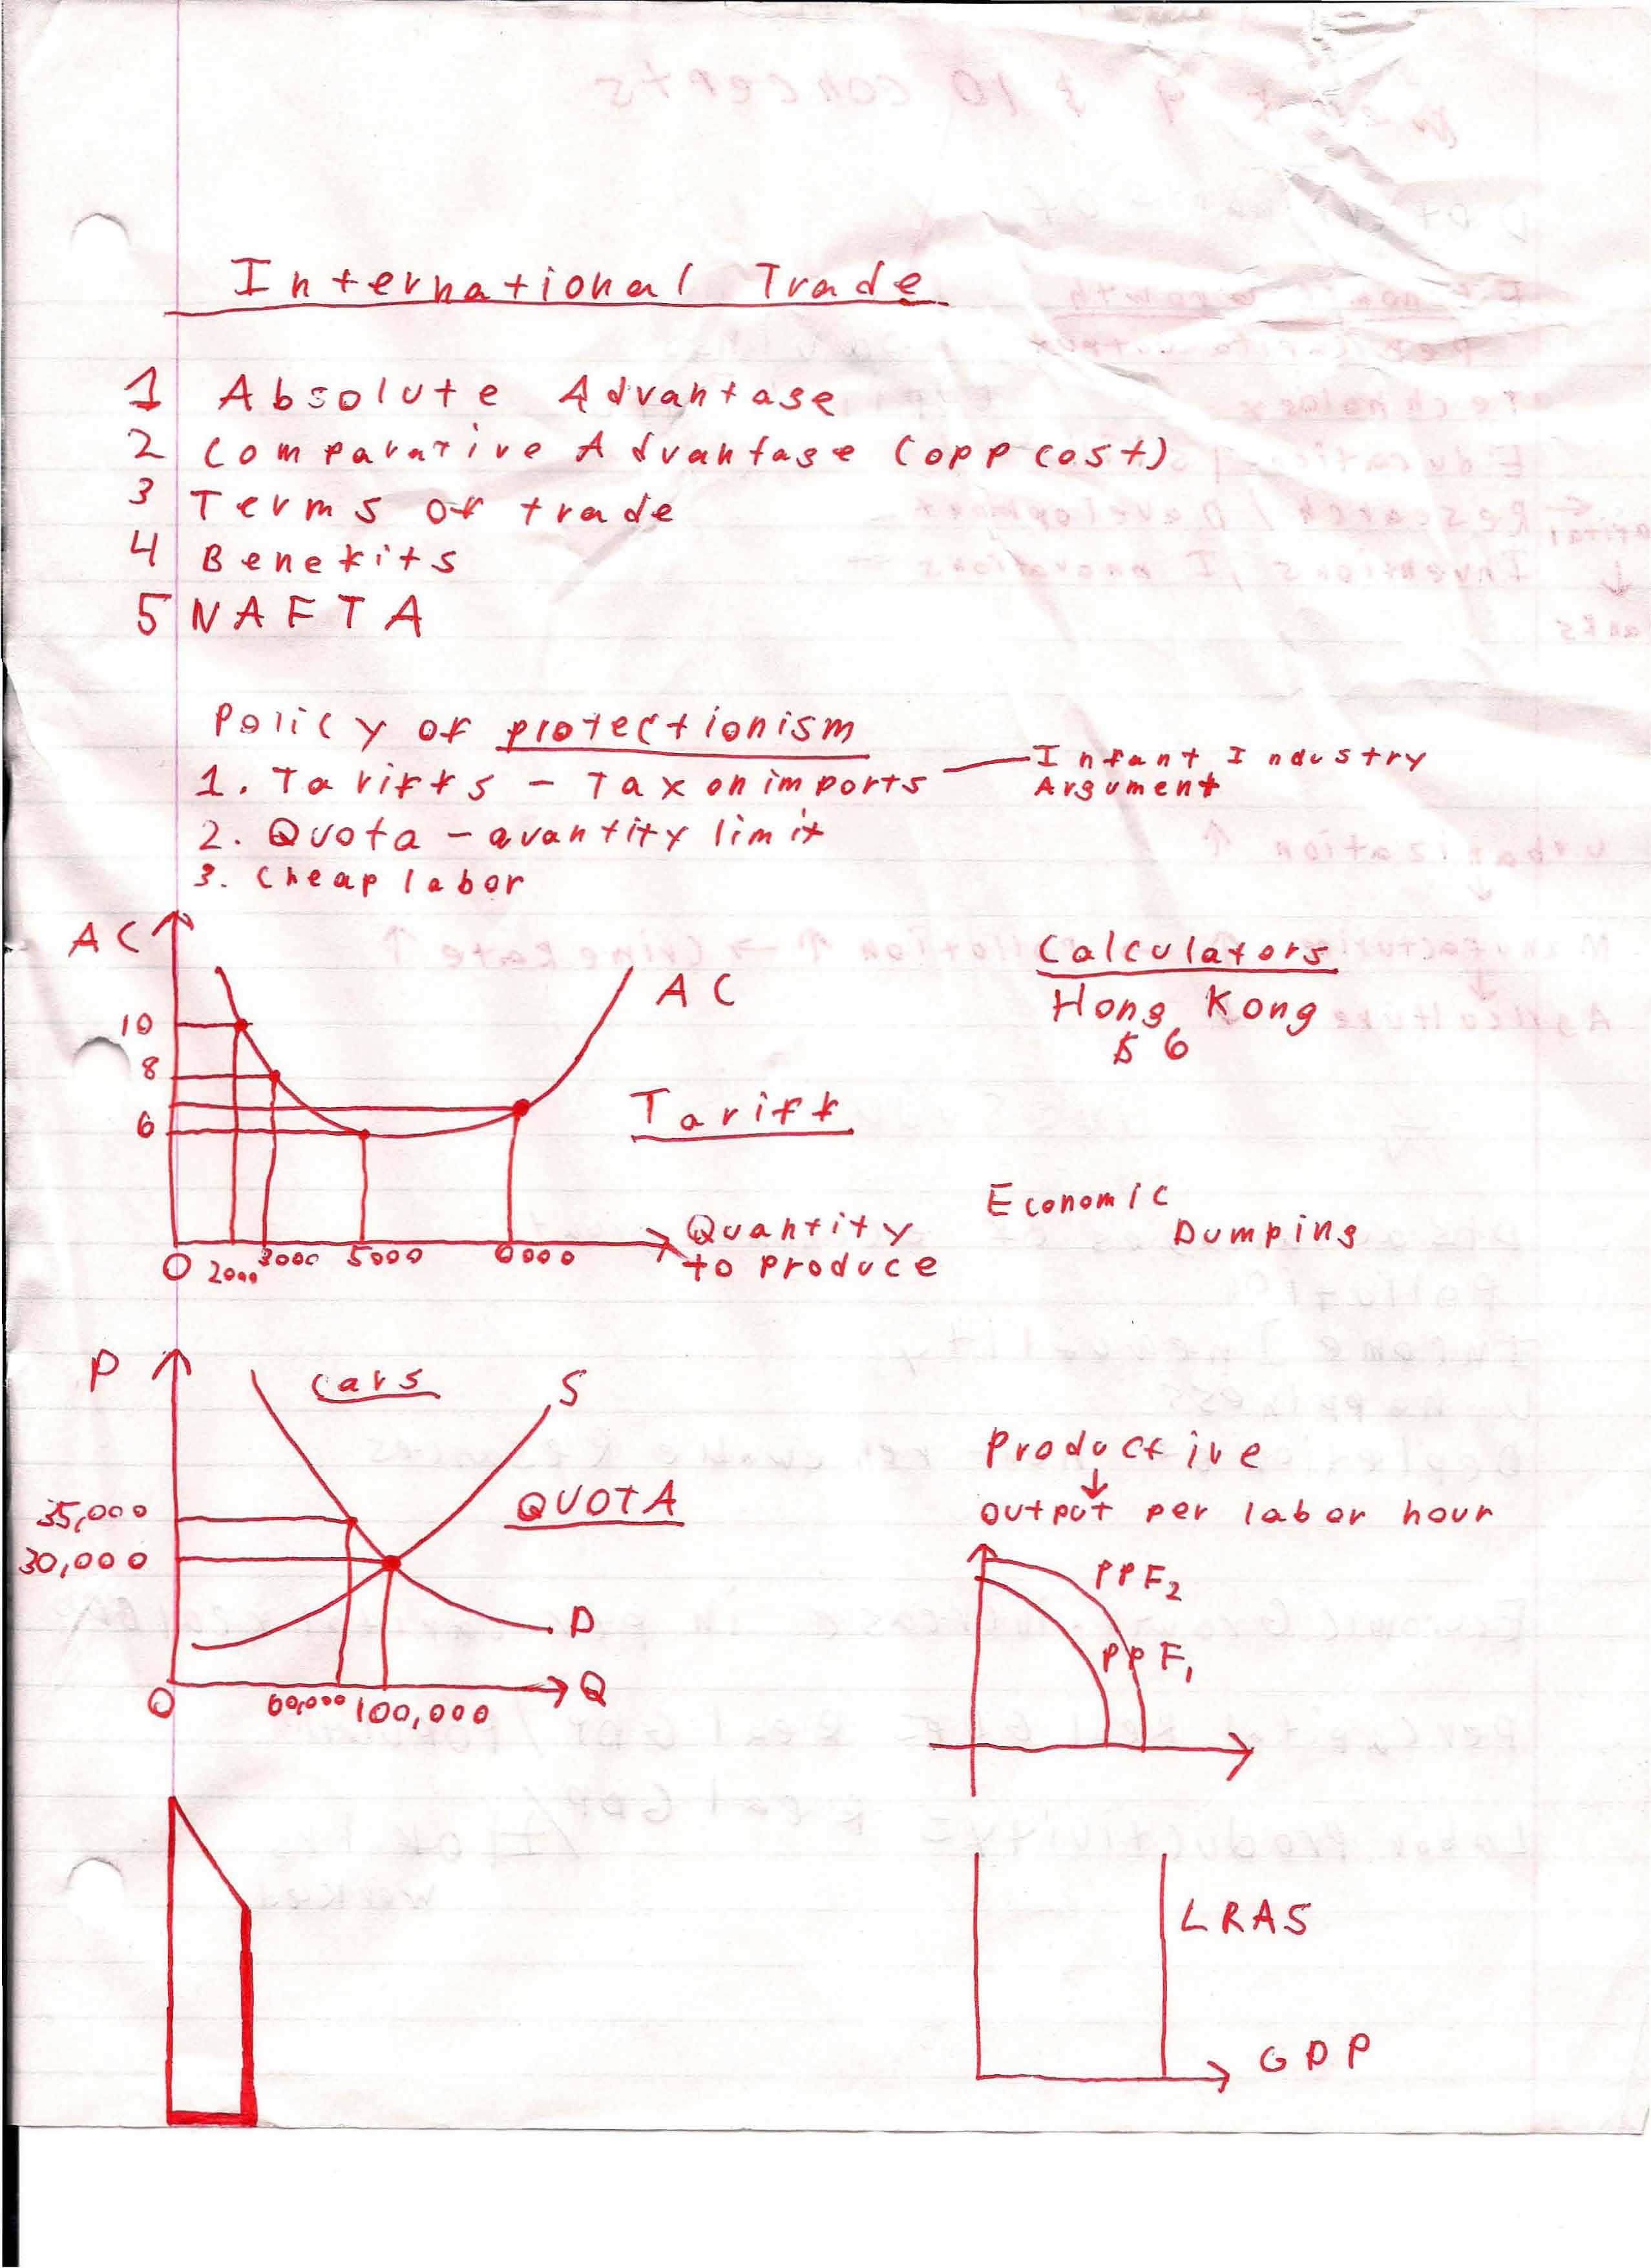 International Trade
1 Absolute Advantage
2 Comparative Advantage (opp cost)
3 Terms of trade
4 Benefits
5 NAFTA
Policy of protectionism
1. Tariffs - Tax on imports
Infant Industry
Argument
2. Quota - quantity limit
3. Cheap labor
AC
AC
10
8
6
0
2000
3000
5000
6000
Quantity
to produce
Tariff
Calculators
Hong Kong
$6
Economic
Dumping
P
Cars
S
QUOTA
35,000
30,000
D
0
60,000
100,000
Q
Productive
↓
output per labor hour
PPF2
PPF1
LRAS
GDP